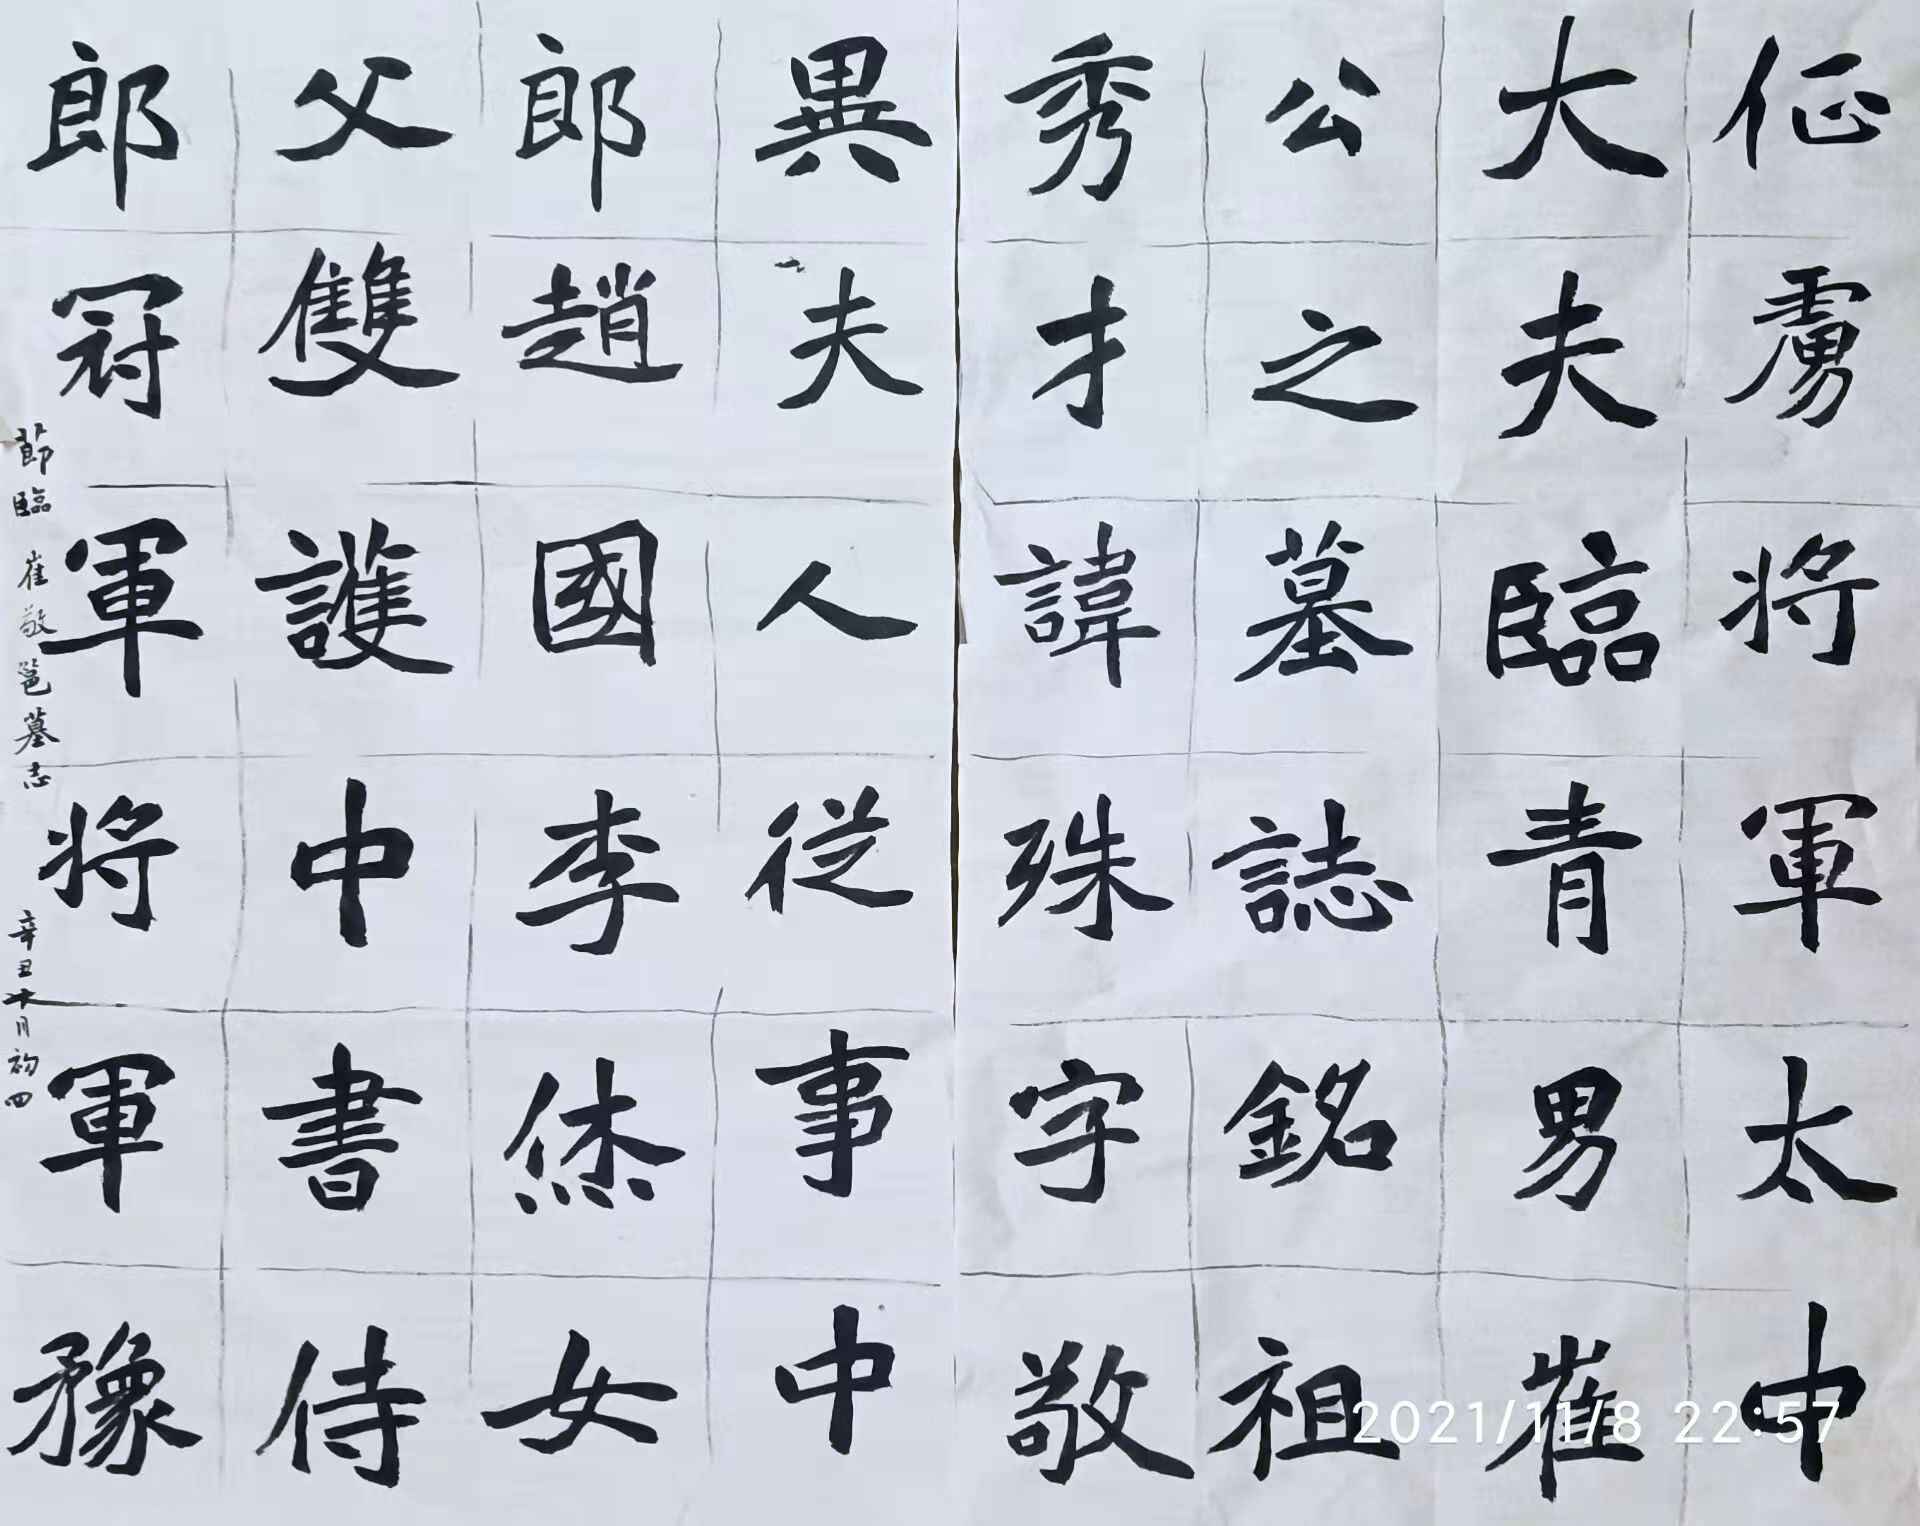 征虜將軍太中
大夫臨青男崔
公之墓誌銘祖
秀才諱殊字敬
異夫人從事中
郎趙國李烋女
父雙護中書侍
郎冠軍將軍豫
節臨崔敬邕墓志
辛丑冰月初四
2021/11/8 22:57